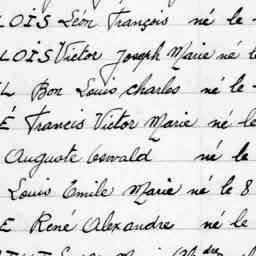 LOIS Léon François né le
LOIS Victor Joseph Marie né l
L Bon Louis charles né le
É Francis Victor Marie né le
Auguste Oswald né le
Louis Emile Marie né le 8
E René Alexandre né le